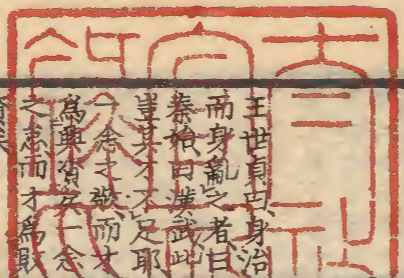 王世貞曰身治
而身亂之者曰
秦始曰漢武此
豈其才不足耶
一念之敬而才
爲興資矣一念
之志而才爲敗